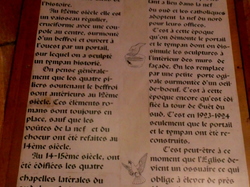 l'histoire.
Au 12ème siècle elle est
un vaisseau régulier,
cruciforme avec une cou-
pole au centre, surmonté
d'un beffroi et ouvert à
l'ouest par un portail,
sur lequel on a sculpté
un tympan historié.
On pense général-
ment que les quatre pi-
liers soutenant le beffroi
sont antérieurs au 12ème
siècle. Ces éléments ro-
mans sont toujours en
place, sauf que les
voûtes de la nef et du
choeur ont été refaites au
14ème siècle.
Au 14-15ème siècle, ont
été édifiées les quatre
chapelles latérales du
que les catholiques
adoptent la nef du nord
pour leurs offices.
C'est à cette époque
qu'on démonte le portail
et le tympan dont on dis-
simule les sculptures à
l'intérieur des murs de
façade. On les remplace
par une petite porte ogi-
vale surmontée d'un oeil-
de-boeuf. C'est à cette
époque encore qu'est édi-
fiée la tour du Sud-Est.
C'est en 1923-1924
seulement que le portail
et le tympan ont été re-
construits.
C'est peut-être à ce
moment que l'Eglise de-
vient un ossuaire ce qui
oblige à élever de près